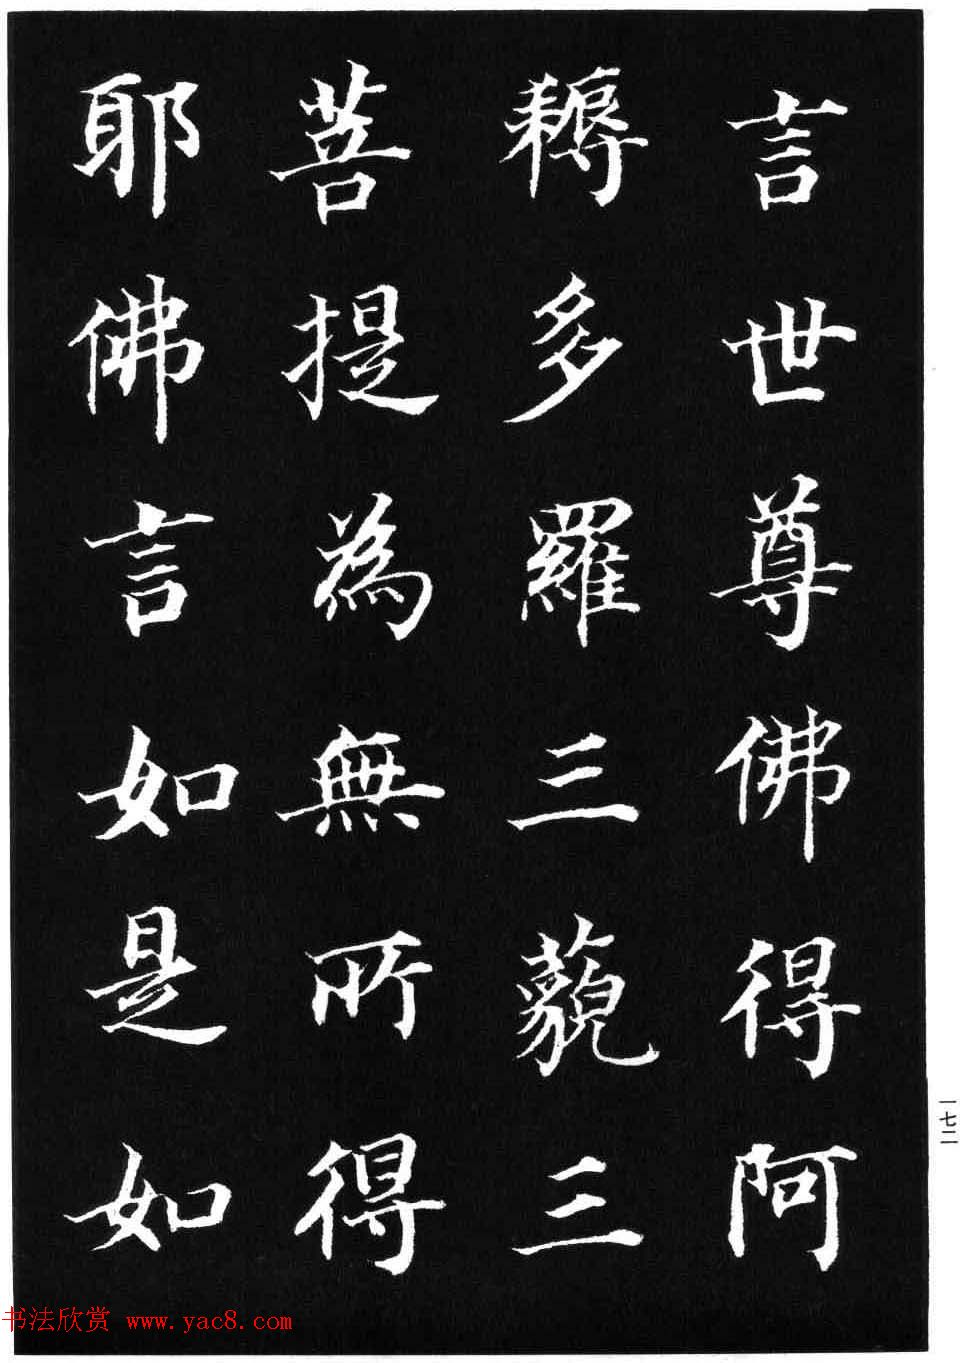 言世尊佛得阿
耨多羅三藐三
菩提為無所得
耶佛言如是如
一七二
书法欣赏 www.yac8.com